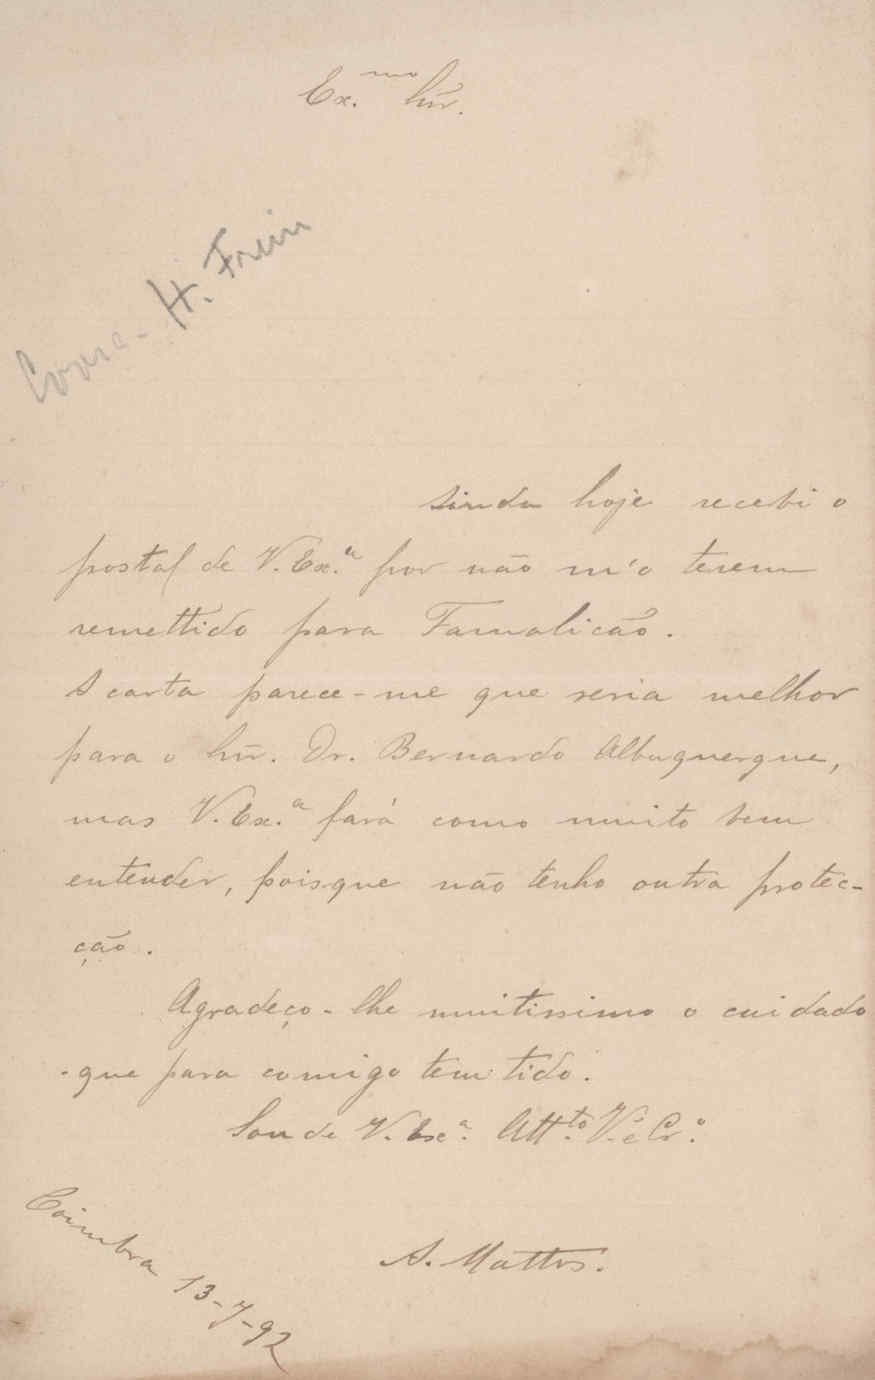 Ex.mo Snr.
H. Freire
Ainda hoje recebi o
postal de V. Ex.a por não m'o terem
remettido para Famalicão.
A carta parece-me que seria melhor
para o Snr. Dr. Bernardo Albuquerque,
mas V. Ex.a fará como muito bem
entender, poisque não tenho outra protec-
ção.
Agradeço-lhe muitissimo o cuidado
que para comigo tem tido.
Sou de V. Exa. Att.to V. e Cr.o
A. Mattos.
Coimbra 13-7-92